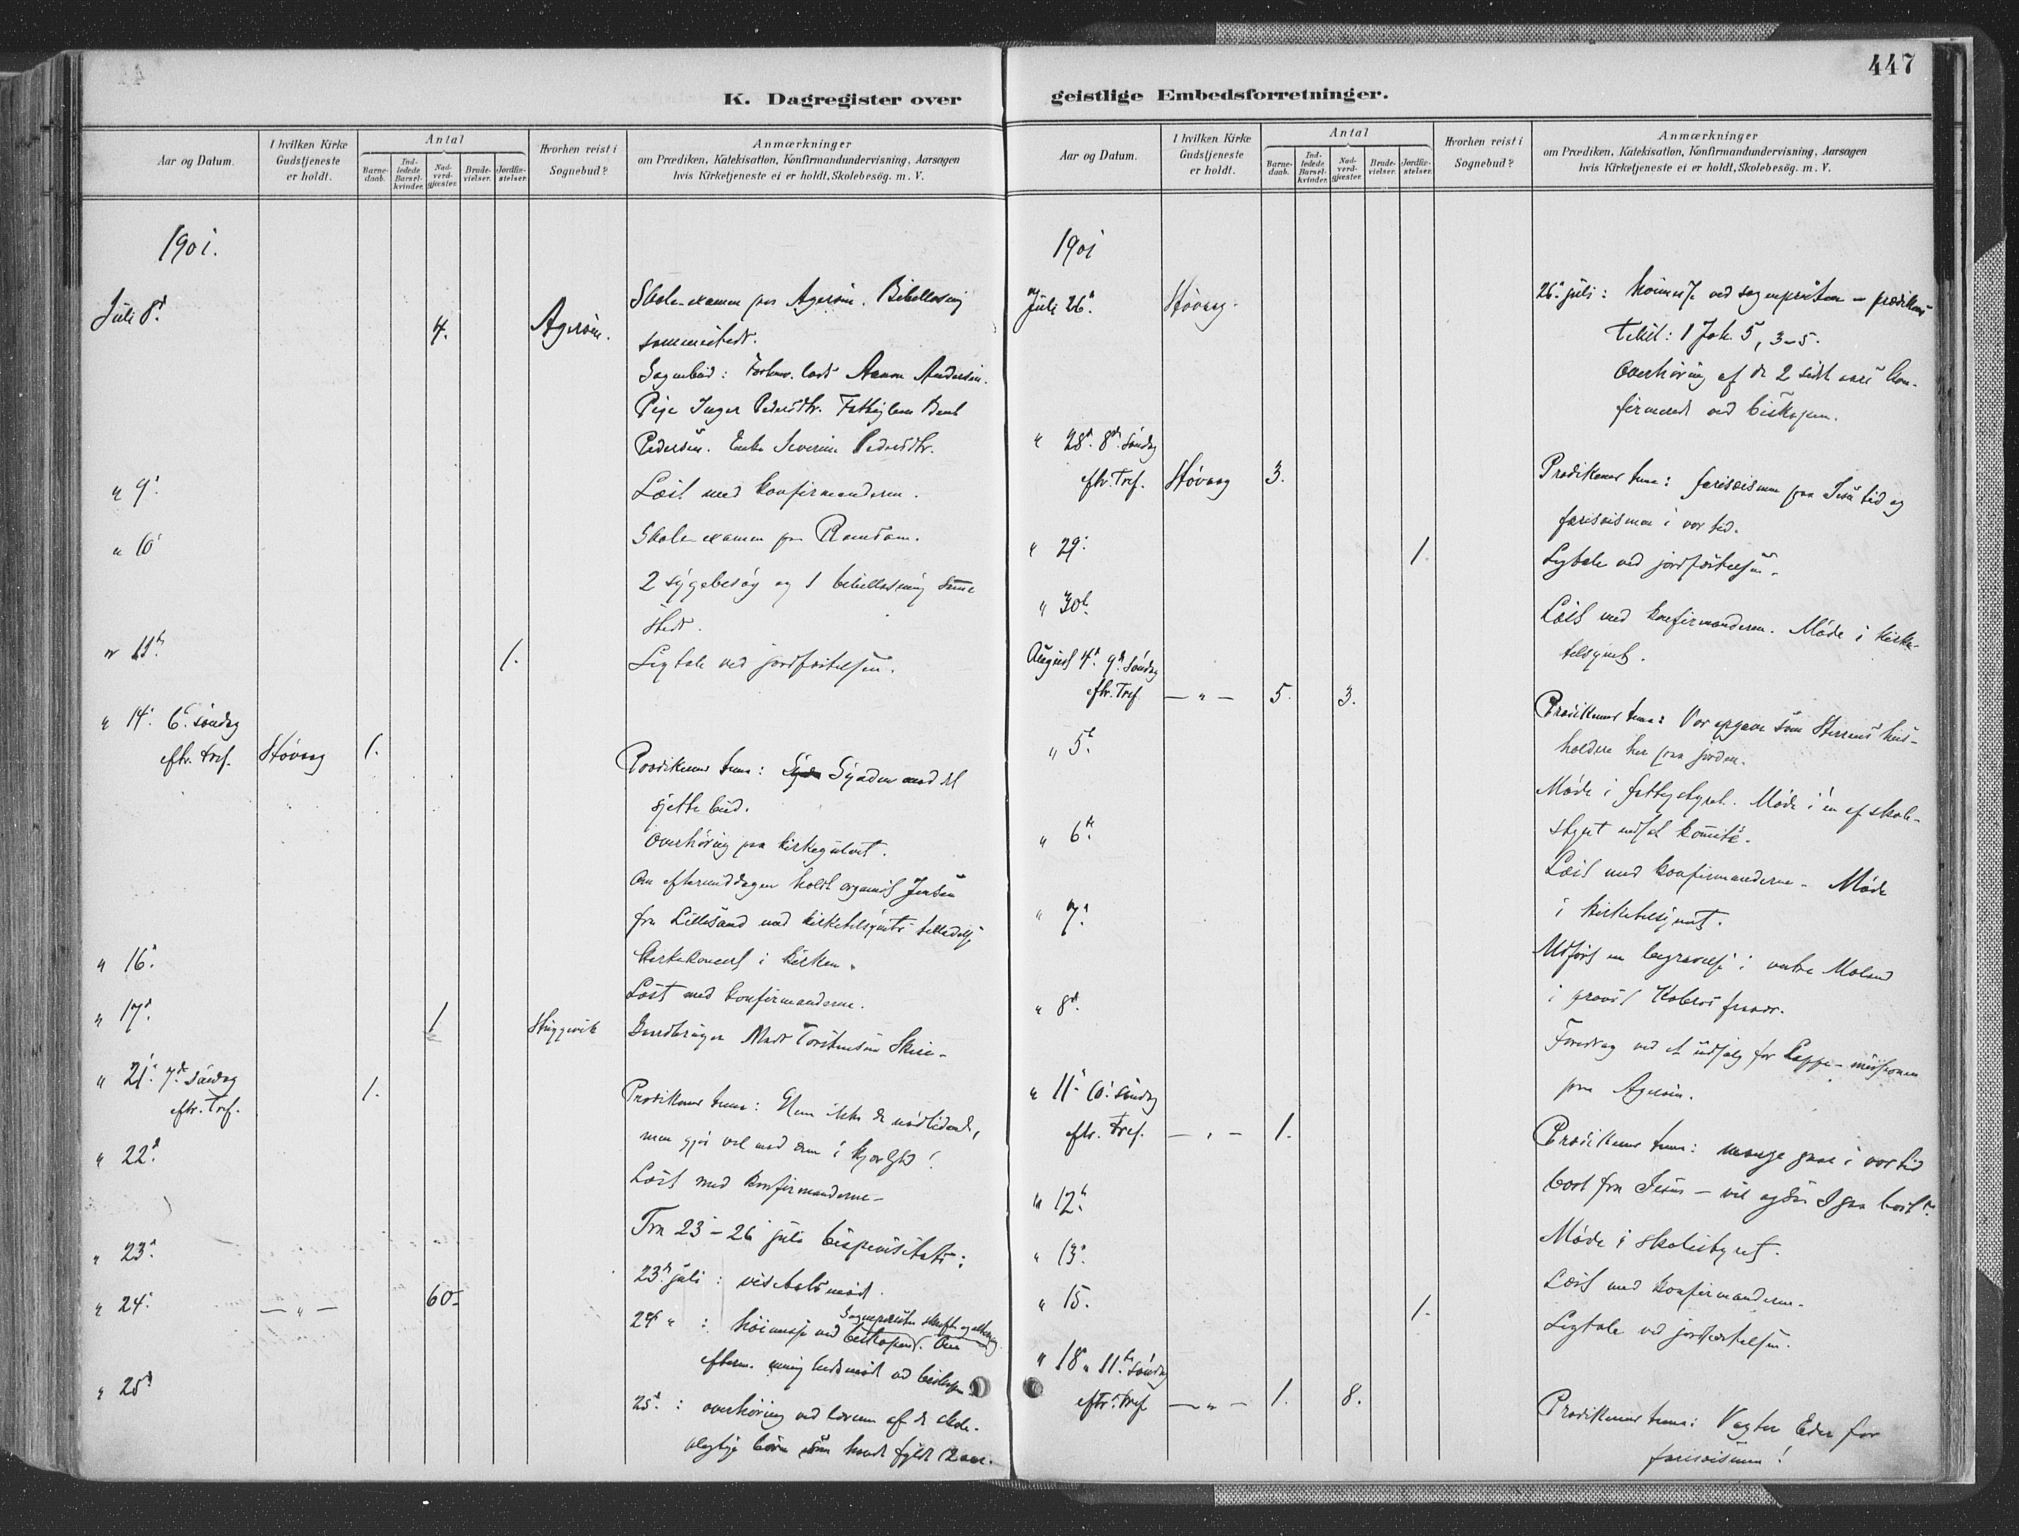 447
K. Dagregister over
Aar og Datum.
I hvilken Kirke Gudstjeneste er holdt.
Antal
Barnedaab.
Indledede Barselkvinder.
Nadverdgjæster.
Brudevielser.
Jordfæstelser.
Hvorhen reist i Sognebud?
Anmærkninger
om Prædiken, Katekisation, Konfirmandundervisning, Aarsagen
hvis Kirketjeneste ei er holdt, Skolebesøg. m. V.
1901.
Juli 8d
4.
Agerøen.
Skole-examen paa Agerøen. Bibellæsning
sammesteds.
Sognebud: Aanon Andersen.
Pige Inger Pedersdtr. Fattiglem Bent
Pedersen. Enke Severine Pedersdtr.
" 9
Læst med konfirmanderne.
" 10
Skole-examen paa
2 sygebesøg og 1 bibellæsning samme
sted.
" 11
1.
Ligtale ved jordfæstelsen.
" 14 6 søndag
efter tref.
Høvaag
1.
Prædikenens tema: Synden mod det
sjette bud.
Overhøring paa kirkegulvet.
Om eftermiddagen holdt organist Jensen
fra Lillesand med kirketilsynets tilladelse
kirkekoncert i kirken.
" 16
Læst med konfirmanderne.
" 17
1
Gaardbruger Mads Torstensen
" 21 7d søndag
efter Tref.
1.
Prædikenens tema: Glem ikke de nødlidende,
men gjør vel mod dem i kjærlighed!
" 22
Læst med konfirmanderne.
" 23
Fra 23 - 26 juli bispevisitats:
23 juli: visitatsmøde.
" 24
— " —
60.
24 " : høimesse ved
efterm. ved biskopen.
" 25
25 : overhøring ved lærerne af de skole-
pligtige børn som havde fyldt 12 aar.
geistlige Embedsforretninger.
Aar og Datum.
I hvilken Kirke Gudstjeneste er holdt.
Antal
Barnedaab.
Indledede Barselkvinder.
Nadverdgjæster.
Brudevielser.
Jordfæstelser.
Hvorhen reist i Sognebud?
Anmærkninger
om Prædiken, Katekisation, Konfirmandundervisning, Aarsagen
hvis Kirketjeneste ei er holdt, Skolebesøg. m. V.
1901
Juli 26
Høvaag.
26 juli: høimesse ved sognepresten - prædikens
Tekst: 1 Joh. 5, 3-5.
Overhøring af de 2 sidste aars kon-
firmerede ved biskopen.
" 28 8de søndag
efter Tref.
Høvaag
3.
Prædikenens tema: farisæismen paa Jesu tid og
farisæismen i vor tid.
" 29
1.
Ligtale ved jordfæstelsen.
" 30
Læst med konfirmanderne. Møde i kirke-
tilsynet.
August 4 9 søndag
efter Tref.
— " —
5.
3.
Prædikenens tema: Vor opgave som Herrens hus-
holdere her paa jorden.
" 5
Møde i fattigstyret. Møde i en af skole-
styret nedsat komité.
" 6
Læst med konfirmanderne. Møde
i kirketilsynet.
" 7
Udført en begravelse i vestre Moland
i
" 8
Foredrag ved et udsalg for Lappe-missionen
paa Agerøen.
" 11 10 søndag
efter Tref.
— " —
1.
Prædikenens tema: mange gaar i vor tid
bort fra Jesus - vil ogsaa I gaa bort?
" 12
Møde i skolestyret.
" 13
Læst med konfirmanderne.
" 15.
1.
Ligtale ved jordfæstelsen.
" 18 11 søndag
efter Tref.
— " —
1.
8.
Prædikenens tema: Vogter Eder for
farisæismen!